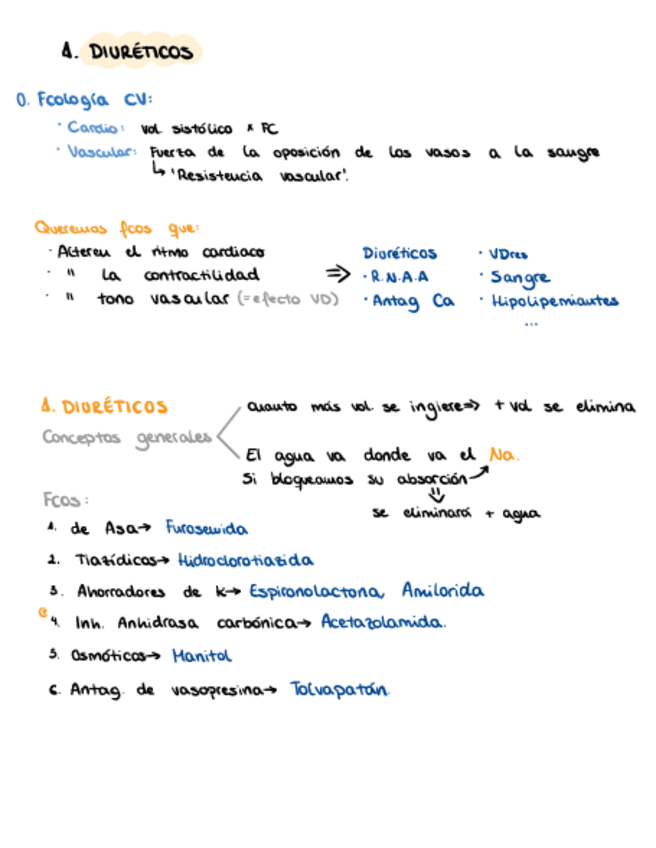 1. DIURÉTICOS
0. Fcología CV:
· Cardio: vol. sistólico x FC
· Vascular: Fuerza de la oposición de los vasos a la sangre
↳ 'Resistencia vascular'.
Queremos fcos que:
· Alteren el ritmo cardiaco
· " la contractilidad
· " tono vascular (= efecto VD)
⇒
Diuréticos
· R.N.A.A
· Antag Ca
· VDres
· Sangre
· Hipolipemiantes
...
1. DIURÉTICOS
Conceptos generales
Cuanto más vol. se ingiere => + vol se elimina
El agua va donde va el Na.
Si bloqueamos su absorción
⇓
se eliminará + agua
Fcos:
1. de Asa → Furosemida
2. Tiazídicos → Hidroclorotiazida
3. Ahorradores de K → Espironolactona, Amilorida
4. Inh. Anhidrasa carbónica → Acetazolamida.
5. Osmóticos → Manitol
6. Antag. de vasopresina → Tolvapatán.